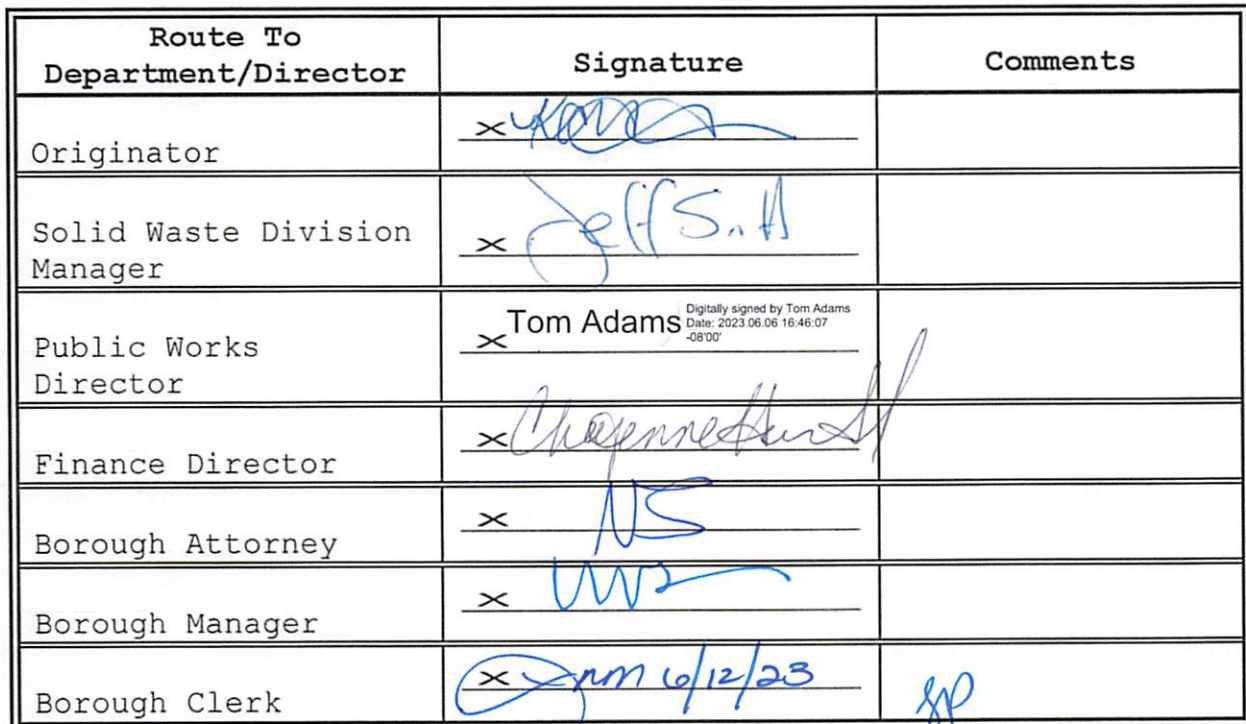 Route To
Department/Director
Signature
Comments
Originator
×
Solid Waste Division
Manager
× Jeff Smith
Public Works
Director
× Tom Adams
Digitally signed by Tom Adams
Date: 2023.06.06 16:46:07
-08'00'
Finance Director
× Cheyenne
Borough Attorney
× NS
Borough Manager
×
Borough Clerk
× 6/12/23